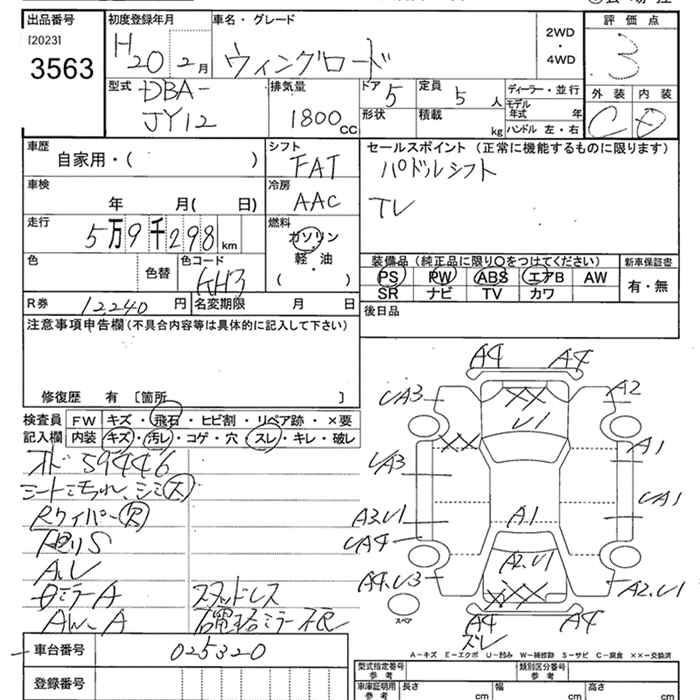 出品番号 初度登録年月 車名・グレード 評価点
[2023]
3563
H20 2月
ウィングロード
2WD
・
4WD
3
型式 DBA-
JY12
排気量
1800 CC
ドア 5
定員 5 人
ディーラー・並行
モデル年式 年
形状 積載 kg
ハンドル 左・右
外装 内装
C D
車歴
自家用・( )
シフト
FAT
セールスポイント (正常に機能するものに限ります)
パドルシフト
TV
車検
年 月( 日)
冷房
AAC
走行
5万9千298km
燃料
ガソリン
・
軽・油
( )
色 色替 色コード
KH3
装備品 (純正品に限り○をつけてください) 新車保証書
PS PW ABS エアB AW
SR ナビ TV カワ
有・無
R券 12240 円 名変期限 月 日
後日品
注意事項申告欄 (不具合内容等は具体的に記入して下さい)
修復歴 有 〔箇所 〕
検査員 FW キズ・飛石・ヒビ割・リペア跡・×要
記入欄 内装 キズ・汚レ・コゲ・穴・スレ・キレ・破レ
オド 59446
シートミちれ、シミ大
Rワイパー欠
AUV
ドミラーA
スタッドレス
AW-A
右電格ミラー不良
A4 A4
UA3 XX A2
U1
XX
A1
UA3
UA1
A3.U1 A1
UA4
A2.U1
A4.U3 XXX A2.U1
スペア
A4 A4
ズレ
A-キズ E-エクボ U-凹み W-補修跡 S-サビ C-腐食 ××-交換済
車台番号 025320
登録番号
型式指定番号 参考 類別区分番号 参考
車庫証明用 参考 長さ cm 幅 cm 高さ cm